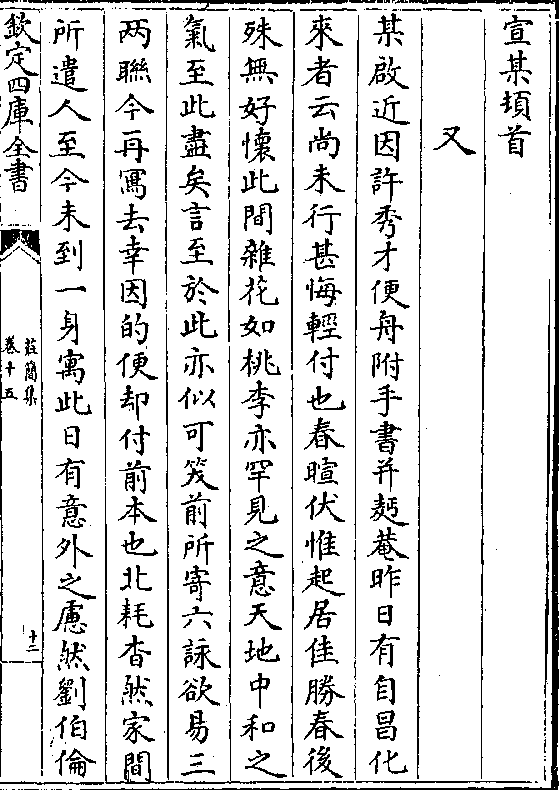 宣某頓首
又
某啟近因許秀才便舟附手書并麪菴昨日有自昌化
來者云尚未行甚悔輕付也春暄伏惟起居佳勝春後
殊無好懷此間雜花如桃李亦罕見之意天地中和之
氣至此盡矣言至於此亦似可笑前所寄六詠欲易三
两聯今再寫去幸因的便却付前本也北耗杳然家間
所遣人至今未到一身寓此日有意外之慮然劉伯倫
欽定四庫全書
莊簡集
卷十五
十二